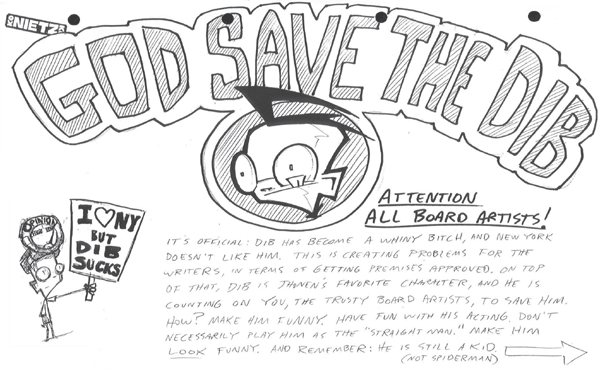 GOD SAVE THE DIB
ATTENTION
ALL BOARD ARTISTS!
I ♡ NY
BUT
DIB
SUCKS
IT'S OFFICIAL: DIB HAS BECOME A WHINY BITCH, AND NEW YORK
DOESN'T LIKE HIM. THIS IS CREATING PROBLEMS FOR THE
WRITERS, IN TERMS OF GETTING PREMISES APPROVED. ON TOP
OF THAT, DIB IS JHONEN'S FAVORITE CHARACTER, AND HE IS
COUNTING ON YOU, THE TRUSTY BOARD ARTISTS, TO SAVE HIM.
HOW? MAKE HIM FUNNY. HAVE FUN WITH HIS ACTING. DON'T
NECESSARILY PLAY HIM AS THE "STRAIGHT MAN." MAKE HIM
LOOK FUNNY. AND REMEMBER: HE IS STILL A KID.
(NOT SPIDERMAN)